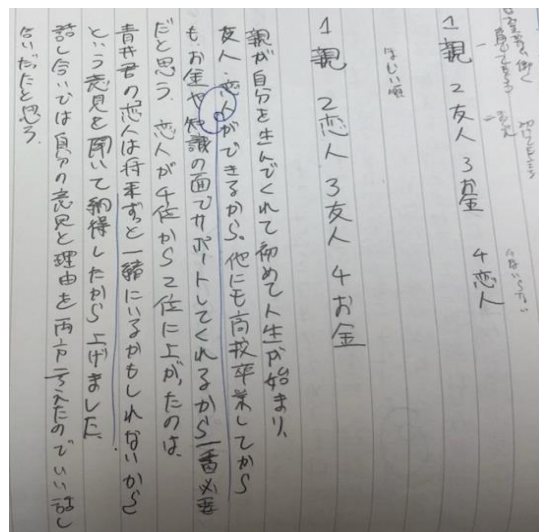 1親 2友人 3お金 4恋人
ほしい順
1親 2恋人 3友人 4お金
親が自分を生んでくれて初めて人生が始まり、
友人・恋人ができるから。他にも高校卒業してから
も、お金や知識の面でサポートしてくれるから一番必要
だと思う。恋人が4位から2位に上がったのは、
青井君の恋人は将来ずっと一緒にいるかもしれないから
という意見を聞いて納得したから上げました。
話し合いでは自分の意見と理由を両方言えたのでいい話し
合いだったと思う。